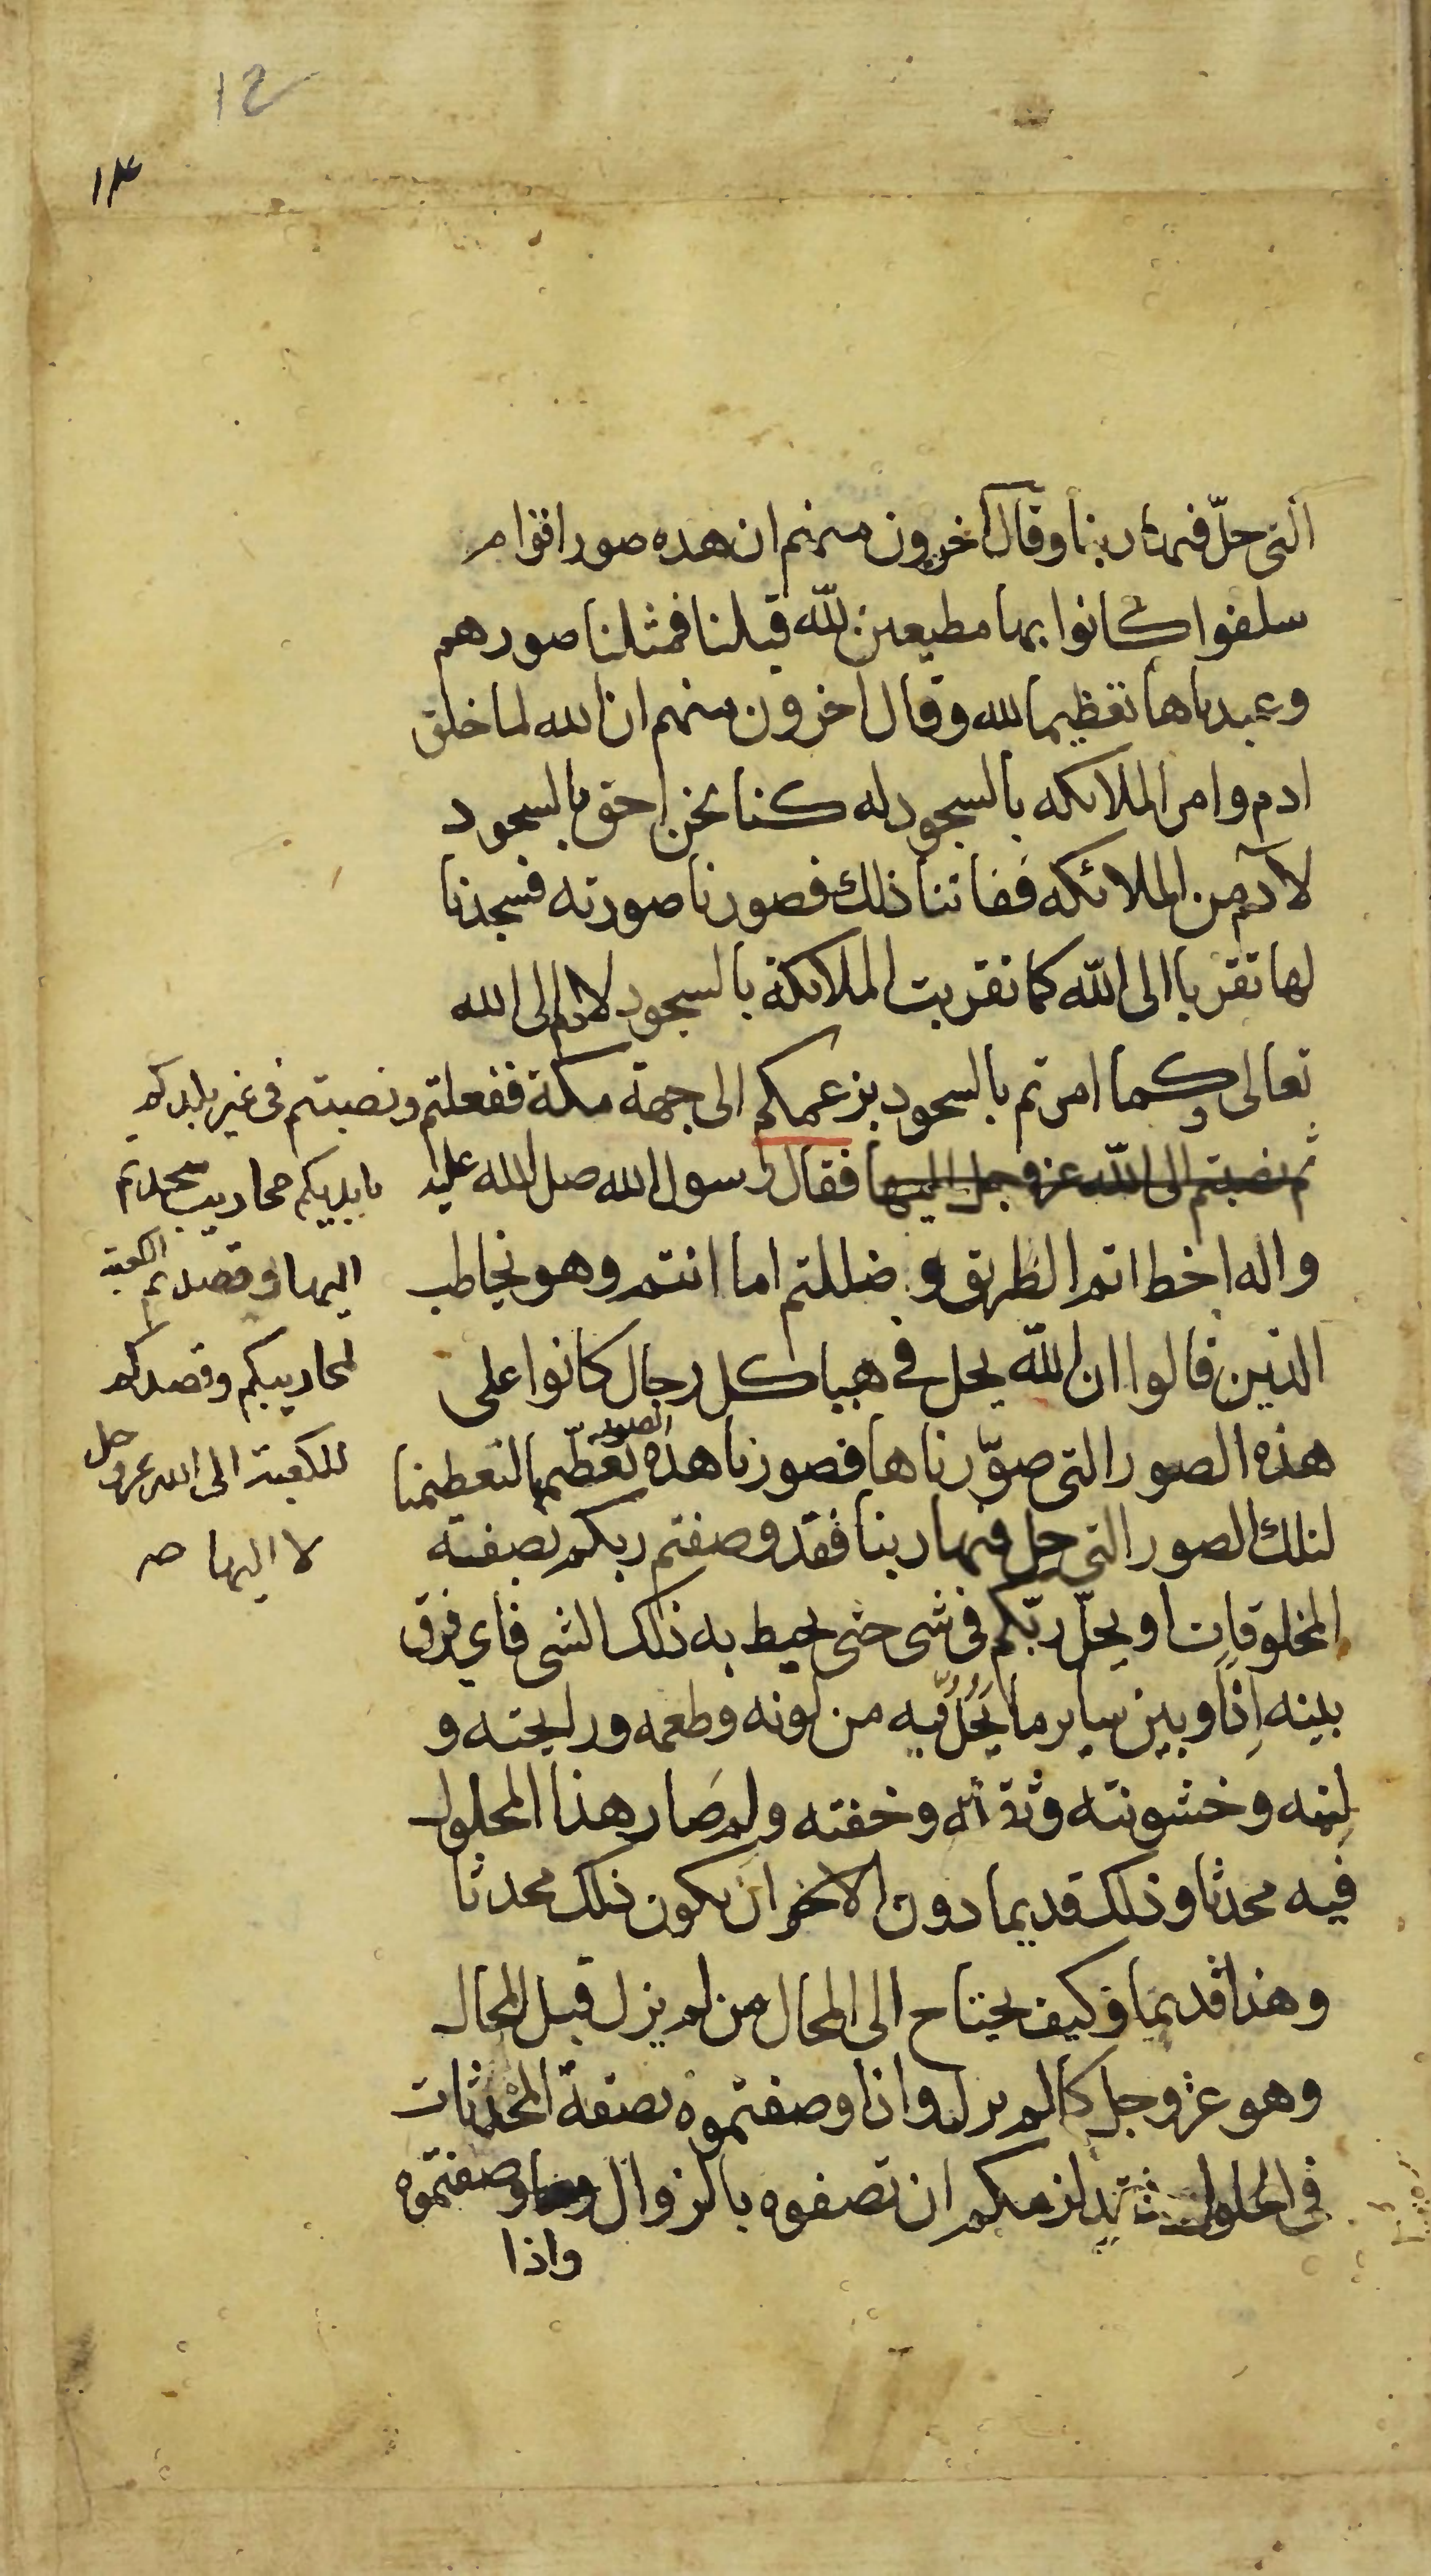 12
١٣
التى حلّ فيها ربنا وقال اخرون منهم ان هذه صور اقوام
سلفوا كانوا بها مطيعين لله قبلنا فمثلنا صورهم
وعبدناها تعظيما لله وقال اخرون منهم ان الله لما خلق
ادم وامر الملائكه بالسجود له كنا نحن احق بالسجود
لآدم من الملائكه ففاتنا ذلك فصورنا صورته فسجدنا
لها تقربا الى الله كما تقربت الملائكة بالسجود لادم الى الله
تعالى وكما امرتم بالسجود بزعمكم الى جهة مكة ففعلتم ونصبتم فى غير بلدكم
ثم نصبتم الى الله عز وجل اليها فقال رسول الله صلى الله عليه
واله اخطاتم الطريق وضللتم اما انتم وهو يخاطب
الذين قالوا ان الله يحل فى هياكل رجال كانوا على
هذه الصور التى صوّرناها فصورنا هذه الصور نعظّمها لتعظيمنا
لتلك الصور التى حل فيها ربنا فقد وصفتم ربكم بصفة
المخلوقات او يحلّ ربّكم فى شى حتى يحيط به ذلك الشى فاي فرق
بينه اذًا وبين ساير ما يَحُلُّ فيه من لونه وطعمه ورايحته و
لينه وخشونته وثقله وخفته ولم صار هذا المحلول
فيه محدثا وذلك قديما دون الاخر ان يكون ذلك محدثا
وهذا قديما وكيف يحتاج الى المحال من لم يزل قبل المحال
وهو عز وجل كما لم يزل واذا وصفتموه بصفة المحدثات
فى الحلول فقد لزمكم ان تصفوه بالزوال وصفتموه
واذا
بايديكم محاريب سجدتم
اليها وقصدتم الكعبة
لمحاريبكم وقصدكم
للكعبة الى الله عز وجل
لا اليها صه